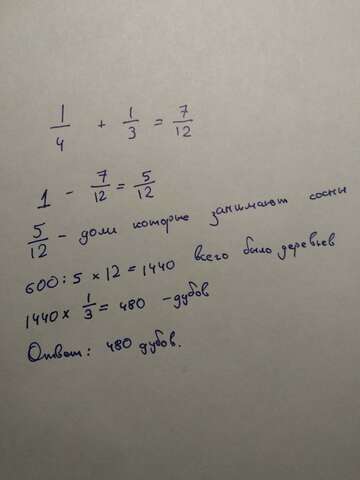 1/4 + 1/3 = 7/12
1 - 7/12 = 5/12
5/12 - доли которые занимают сосны
600 : 5 × 12 = 1440 всего было деревьев
1440 × 1/3 = 480 - дубов
Ответ: 480 дубов.